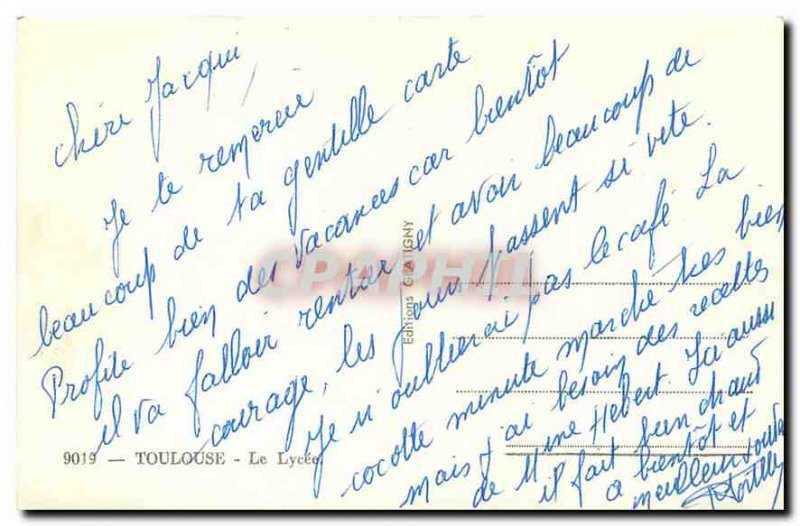 chère Jacqui,
Je te remercie
beaucoup de ta gentille carte
Profite bien des vacances car bientôt
il va falloir rentrer et avoir beaucoup de
courage, les jours passent si vite.
Je n'oublierai pas le café La
cocotte minute marche très bien
mais j'ai besoin des recettes
de Mme Hebert. Ici aussi
il fait bien chaud
a bientôt et
meilleur
Editions GRATIGNY
CPAPHIL
9019 — TOULOUSE - Le Lycée